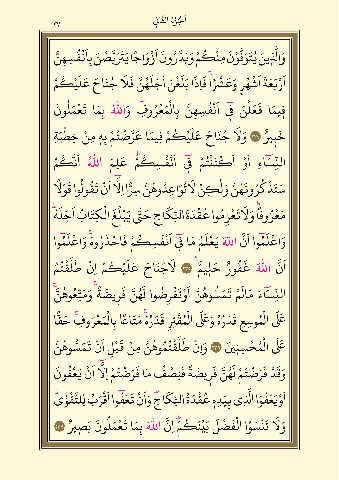 اَلْجُزْءُ الثَّانِي
٣٧
وَالَّذِينَ يُتَوَفَّوْنَ مِنْكُمْ وَيَذَرُونَ اَزْوَاجًا يَتَرَبَّصْنَ بِاَنْفُسِهِنَّ
اَرْبَعَةَ اَشْهُرٍ وَعَشْرًاۚ فَاِذَا بَلَغْنَ اَجَلَهُنَّ فَلَا جُنَاحَ عَلَيْكُمْ
فِيمَا فَعَلْنَ فِٓي اَنْفُسِهِنَّ بِالْمَعْرُوفِۜ وَاللّٰهُ بِمَا تَعْمَلُونَ
خَبِيرٌ ﴿٢٣٤﴾ وَلَا جُنَاحَ عَلَيْكُمْ فِيمَا عَرَّضْتُمْ بِهِ مِنْ خِطْبَةِ
النِّسَٓاءِ اَوْ اَكْنَنْتُمْ فِٓي اَنْفُسِكُمْۜ عَلِمَ اللّٰهُ اَنَّكُمْ
سَتَذْكُرُونَهُنَّ وَلٰكِنْ لَا تُوَاعِدُوهُنَّ سِرًّا اِلَّٓا اَنْ تَقُولُوا قَوْلًا
مَعْرُوفًاۜ وَلَا تَعْزِمُوا عُقْدَةَ النِّكَاحِ حَتّٰى يَبْلُغَ الْكِتَابُ اَجَلَهُۜ
وَاعْلَمُٓوا اَنَّ اللّٰهَ يَعْلَمُ مَا فِٓي اَنْفُسِكُمْ فَاحْذَرُوهُۚ وَاعْلَمُٓوا
اَنَّ اللّٰهَ غَفُورٌ حَلِيمٌ۟ ﴿٢٣٥﴾ لَا جُنَاحَ عَلَيْكُمْ اِنْ طَلَّقْتُمُ
النِّسَٓاءَ مَا لَمْ تَمَسُّوهُنَّ اَوْ تَفْرِضُوا لَهُنَّ فَرِيضَةًۚ وَمَتِّعُوهُنَّۚ
عَلَى الْمُوسِعِ قَدَرُهُ وَعَلَى الْمُقْتِرِ قَدَرُهُۚ مَتَاعًا بِالْمَعْرُوفِۚ حَقًّا
عَلَى الْمُحْسِنِينَ ﴿٢٣٦﴾ وَاِنْ طَلَّقْتُمُوهُنَّ مِنْ قَبْلِ اَنْ تَمَسُّوهُنَّ
وَقَدْ فَرَضْتُمْ لَهُنَّ فَرِيضَةً فَنِصْفُ مَا فَرَضْتُمْ اِلَّٓا اَنْ يَعْفُونَ
اَوْ يَعْفُوَا الَّذِي بِيَدِهِ عُقْدَةُ النِّكَاحِۜ وَاَنْ تَعْفُٓوا اَقْرَبُ لِلتَّقْوٰىۜ
وَلَا تَنْسَوُا الْفَضْلَ بَيْنَكُمْۜ اِنَّ اللّٰهَ بِمَا تَعْمَلُونَ بَصِيرٌ ﴿٢٣٧﴾